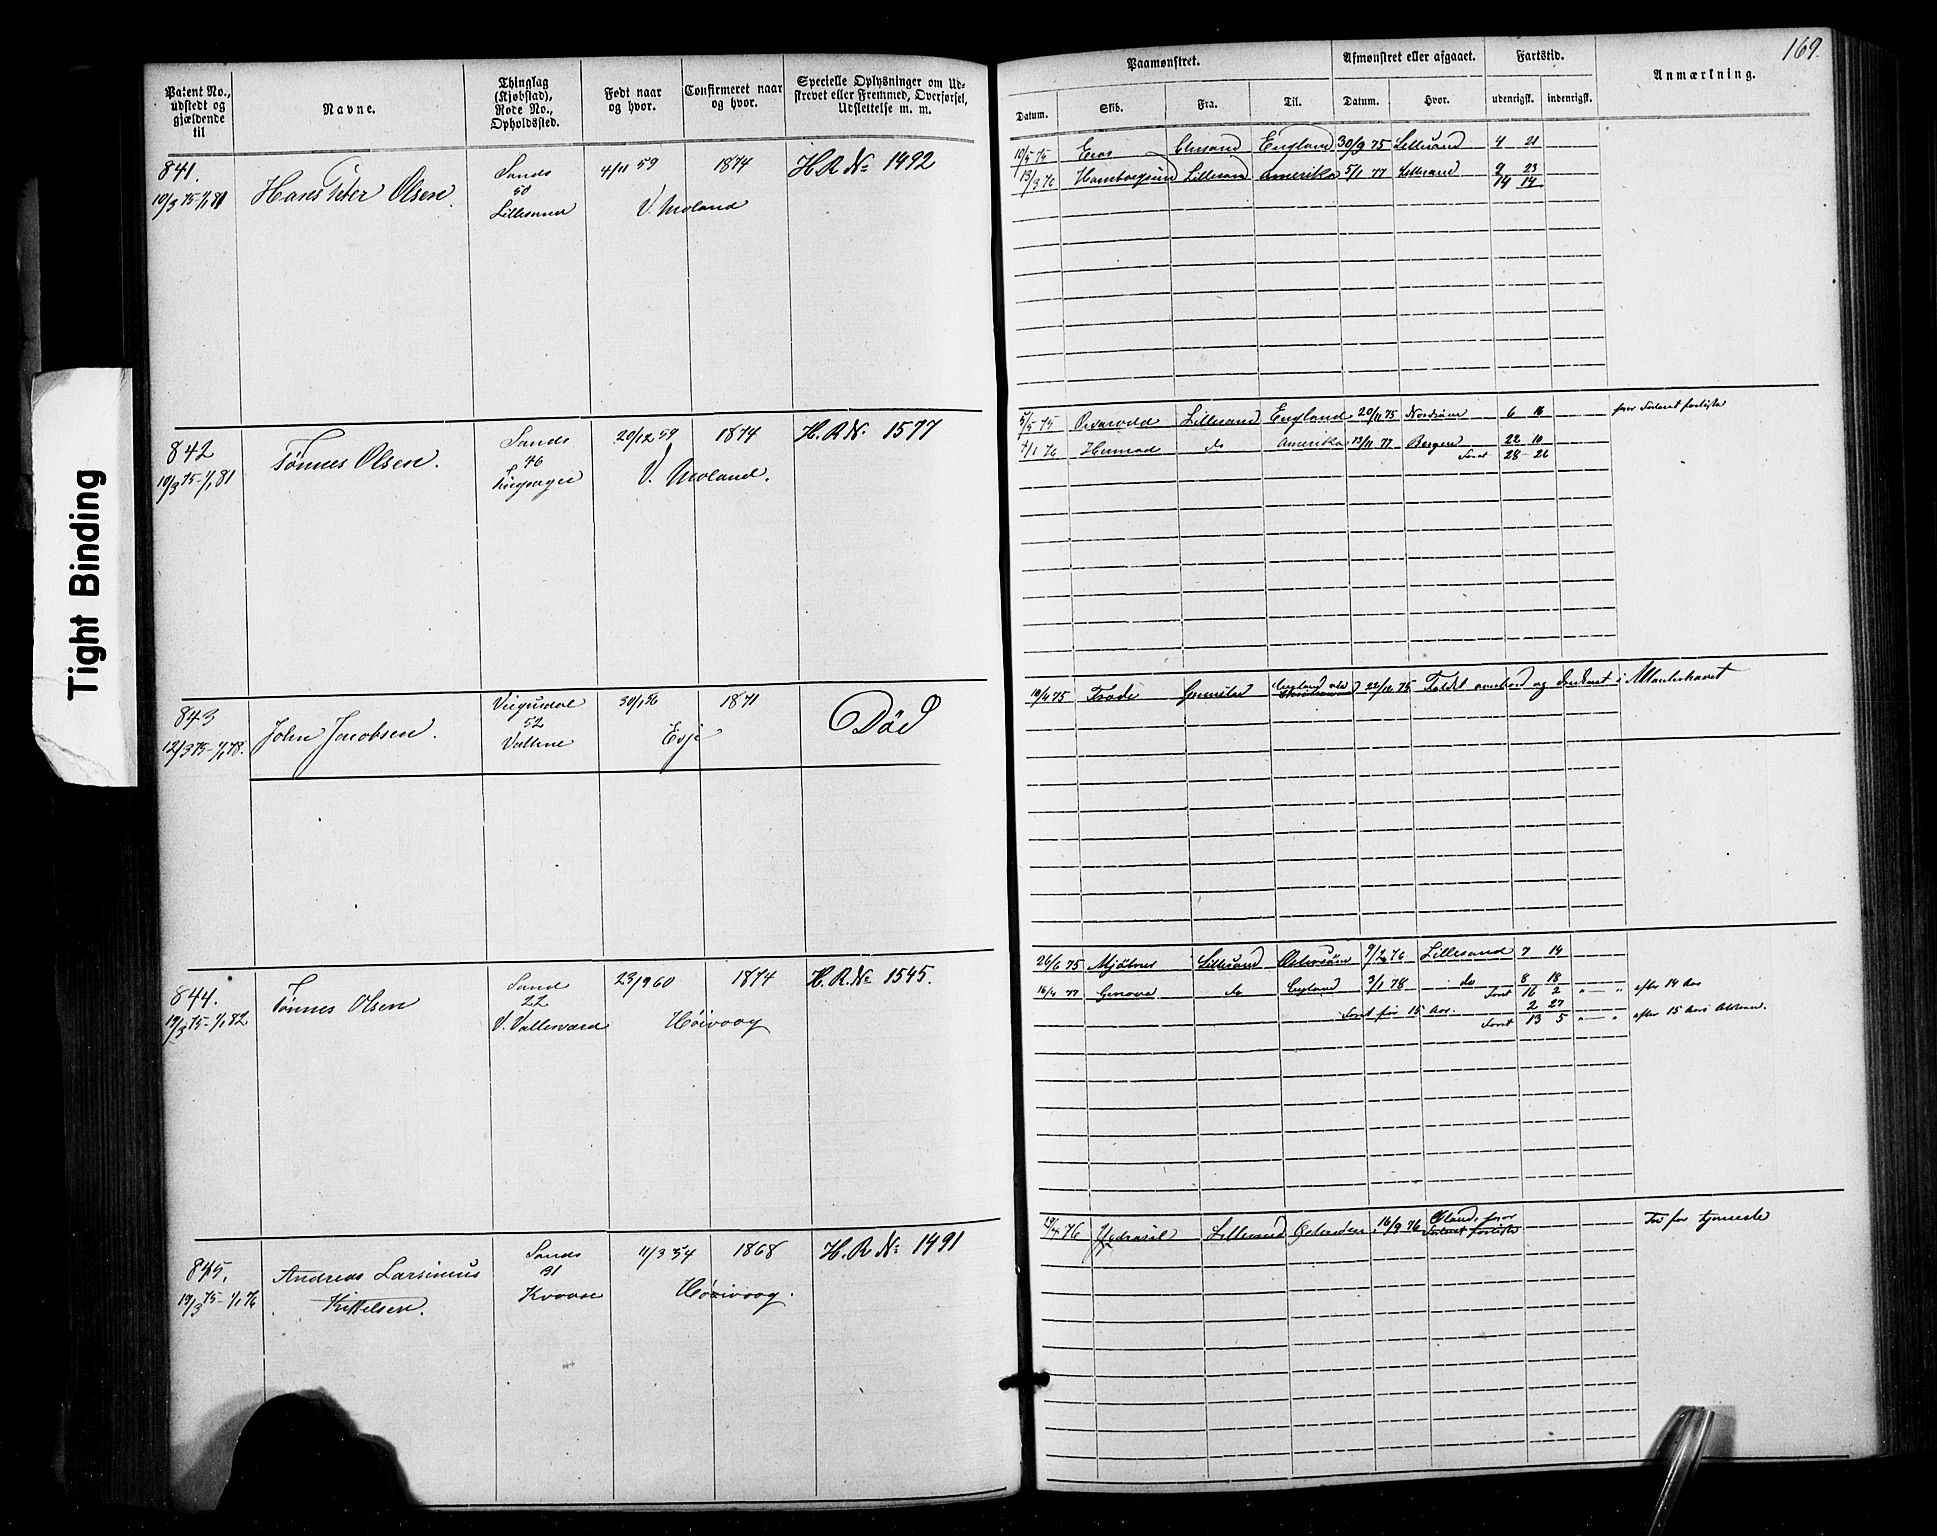 Tight Binding
169.
Patent No., udstedt og gjældende til
Navne.
Thinglag (Kjøbstad), Rode No., Opholdssted.
Født naar og hvor.
Confirmeret naar og hvor.
Specielle Oplysninger om Udskrevet eller Fremmed, Overførsel, Udslettelse m. m.
Paamønstret.
Afmønstret eller afgaaet.
Fartstid.
Anmærkning.
Datum.
Skib.
Fra.
Til.
Datum.
Hvor.
udenrigsk.
indenrigsk.
841.
10/3 75-1/1 81
Hans Peter Olsen.
Sands
50
Lillesand
4/11 59
1874
V. Moland
H R No 1492
10/5 75 Eros England 30/9 75 Lillesand 4 21
13/3 76 Lillesand Amerika 5/1 77 Lillesand 9 23
14 14
842
10/3 75-1/1 81
Tønnes Olsen.
Sands
46
20/12 59
1874
V. Moland.
H. R N. 1577
5/5 75 Lillesand England 20/11 75 6 16
4/1 76 do Amerika 13/11 77 Bergen 22 10
Foret 28 26
843
12/3 75-1/1 78.
John Jacobsen.
Vegusdal
52
30/1 56
1871
Evje
Død
10/4 75 England 22/12 75 Faldt overbord og druknet i Atlanterhavet
844.
19/3 75-1/1 82
Tønnes Olsen
Sand
22
V. Valleværd
23/9 60
1874
Høivaag
H. R. No 1545.
26/6 75 Mjølner Lillesand 9/2 76 Lillesand 7 14
16/4 77 Genova do England 3/1 78 do 8 18
Foret 16 2 " — " efter 14 Aar
2 27
Foret før 15 Aar.
Foret 13 5 " — " efter 15 Aars Alderen.
845.
19/3 75-1/1 76
Andreas Larsinius
Kittelsen.
Sands
31
Kvaase
11/3 54
1868
Høivaag.
H. R No 1491
19/4 76 Ygdrasil Lillesand 16/9 76 Øland, hvor
Forleret forliste
Fri for tjeneste